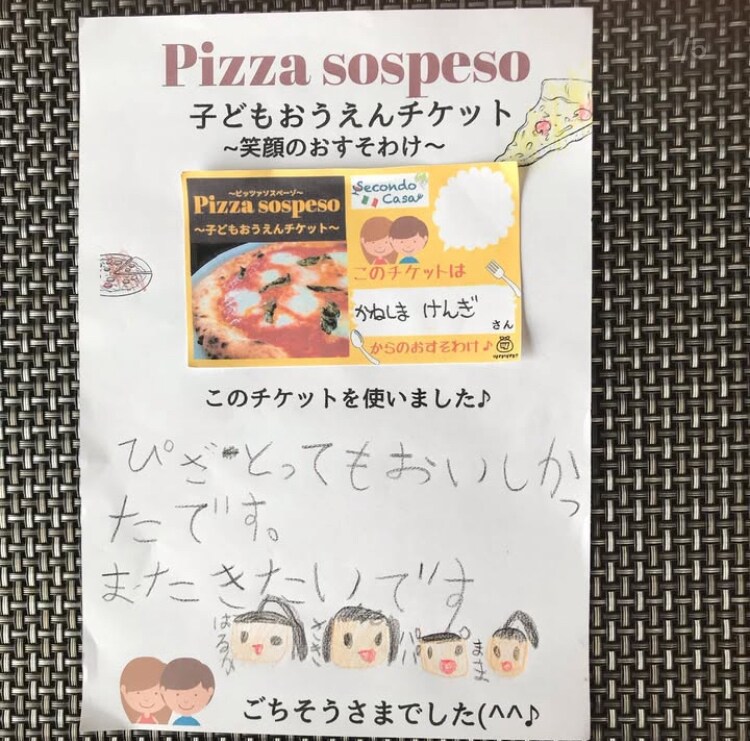 1/5
Pizza sospeso
子どもおうえんチケット
~笑顔のおすそわけ~
~ピッツァソスペーゾ~
Pizza sospeso
~子どもおうえんチケット~
Secondo
Casa
このチケットは
かねしま けんぎ
さん
からのおすそわけ♪
このチケットを使いました♪
ぴざとってもおいしかっ
たです。
またきたいです
はるか
さき
パパ
まま
ごちそうさまでした(^^♪